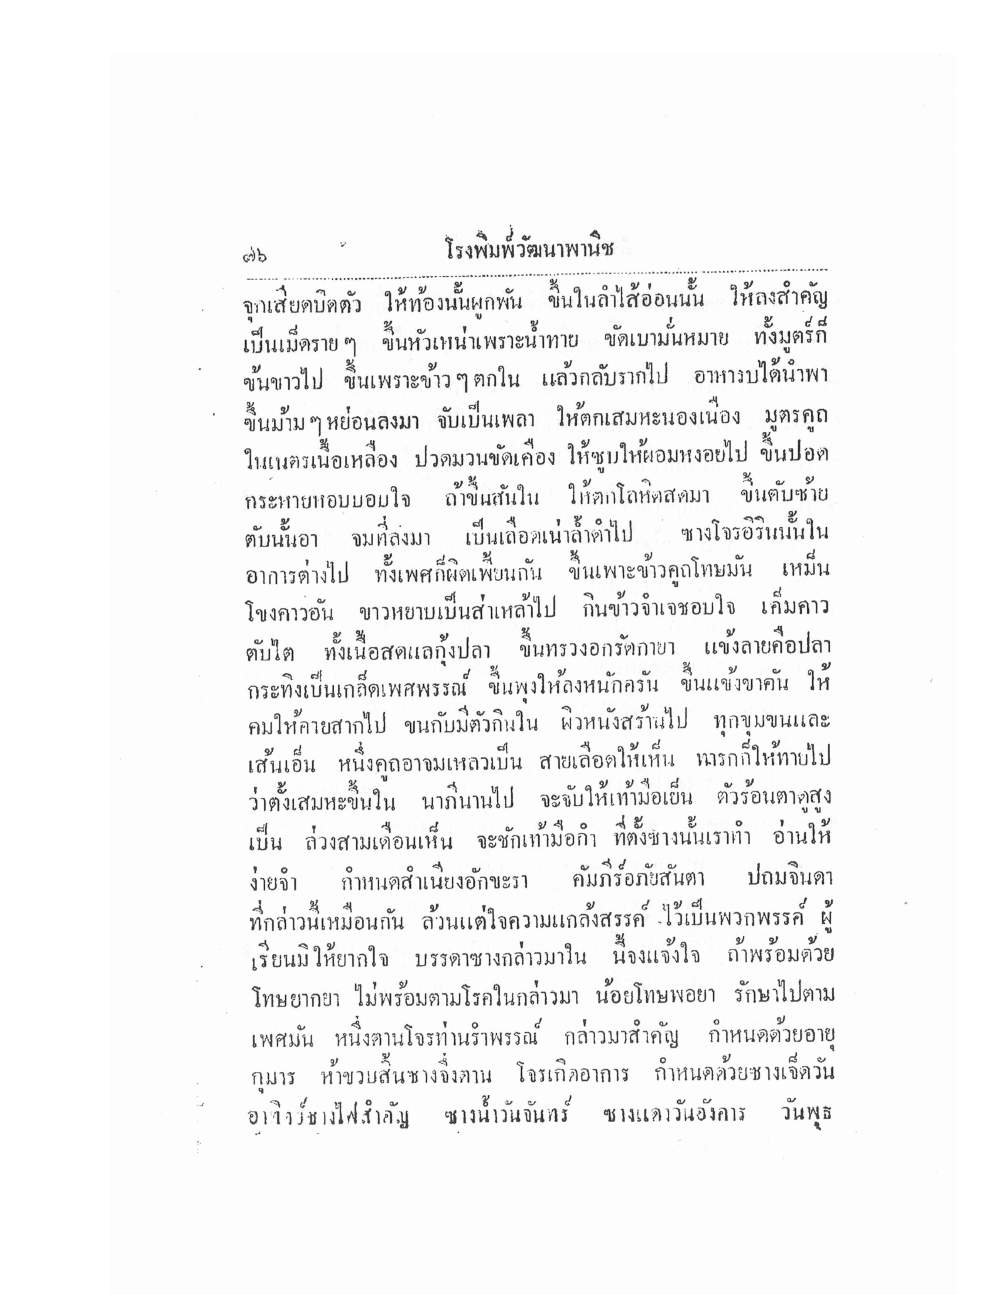 ๗๖ โรงพิมพ์วัฒนาพานิช
จุกเสียดบิดตัว ให้ท้องนั้นผูกพัน ขึ้นในลำไส้อ่อนนั้น ให้ลงสำคัญ
เป็นเม็ดราย ๆ ขึ้นหัวเหน่าเพราะน้ำทาย ขัดเบามั่นหมาย ทั้งมูตร์ก็
ข้นขาวไป ขึ้นเพราะข้าว ๆ ตกใน แล้วกลับรากไป อาหารบได้นำพา
ขึ้นม้าม ๆ หย่อนลงมา จับเป็นเพลา ให้ตกเสมหะนองเนือง มูตรคูถ
ในเนตรเนื้อเหลือง ปวดมวนขัดเคือง ให้ซูบให้ผอมหงอยไป ขึ้นปอด
กระหายหอบบอบใจ ถ้าขึ้นสันใน ให้ตกโลหิตสดมา ขึ้นตับซ้าย
ตับนั้นอา จมที่ลงมา เป็นเลือดเน่าล้ำดำไป ซางโจรอิรินนั้นใน
อาการต่างไป ทั้งเพศก็ผิดเพี้ยนกัน ขึ้นเพาะข้าวคูถโทษมัน เหม็น
โขงคาวอัน ขาวหยาบเป็นส่าเหล้าไป กินข้าวจำเจชอบใจ เค็มคาว
ตับไต ทั้งเนื้อสดแลกุ้งปลา ขึ้นทรวงอกรัดกายา แข้งลายคือปลา
กระทิงเป็นเกล็ดเพศพรรณ์ ขึ้นพุงให้ลงหนักครัน ขึ้นแข้งขาคัน ให้
คมให้คายสากไป ขนกับมีตัวกินใน ผิวหนังสร้านไป ทุกขุมขนและ
เส้นเอ็น หนึ่งคูถอาจมเหลวเป็น สายเลือดให้เห็น ทารกก็ให้ทาบไป
ว่าตั้งเสมหะขึ้นใน นาภีนานไป จะจับให้เท้ามือเย็น ตัวร้อนตาดูสูง
เป็น ล่วงสามเดือนเห็น จะชักเท้ามือกำ ที่ตั้งซางนั้นเราทำ อ่านให้
ง่ายจำ กำหนดสำเนียงอักขะรา คัมภีร์อภัยสันตา ปถมจินดา
ที่กล่าวนี้เหมือนกัน ล้วนแต่ใจความแกล้งสรรค์ ไว้เป็นพวกพรรค์ ผู้
เรียนมิให้ยากใจ บรรดาซางกล่าวมาใน นี้จงแจ้งใจ ถ้าพร้อมด้วย
โทษยากยา ไม่พร้อมตามโรคในกล่าวมา น้อยโทษพอยา รักษาไปตาม
เพศมัน หนึ่งตานโจรท่านรำพรรณ์ กล่าวมาสำคัญ กำหนดด้วยอายุ
กุมาร ห้าขวบสิ้นซางจึ่งตาน โจรเกิดอาการ กำหนดด้วยซางเจ็ดวัน
อาทิตว์ซางไฟสำคัญ ซางน้ำวันจันทร์ ซางแดงวันอังคาร วันพุธ